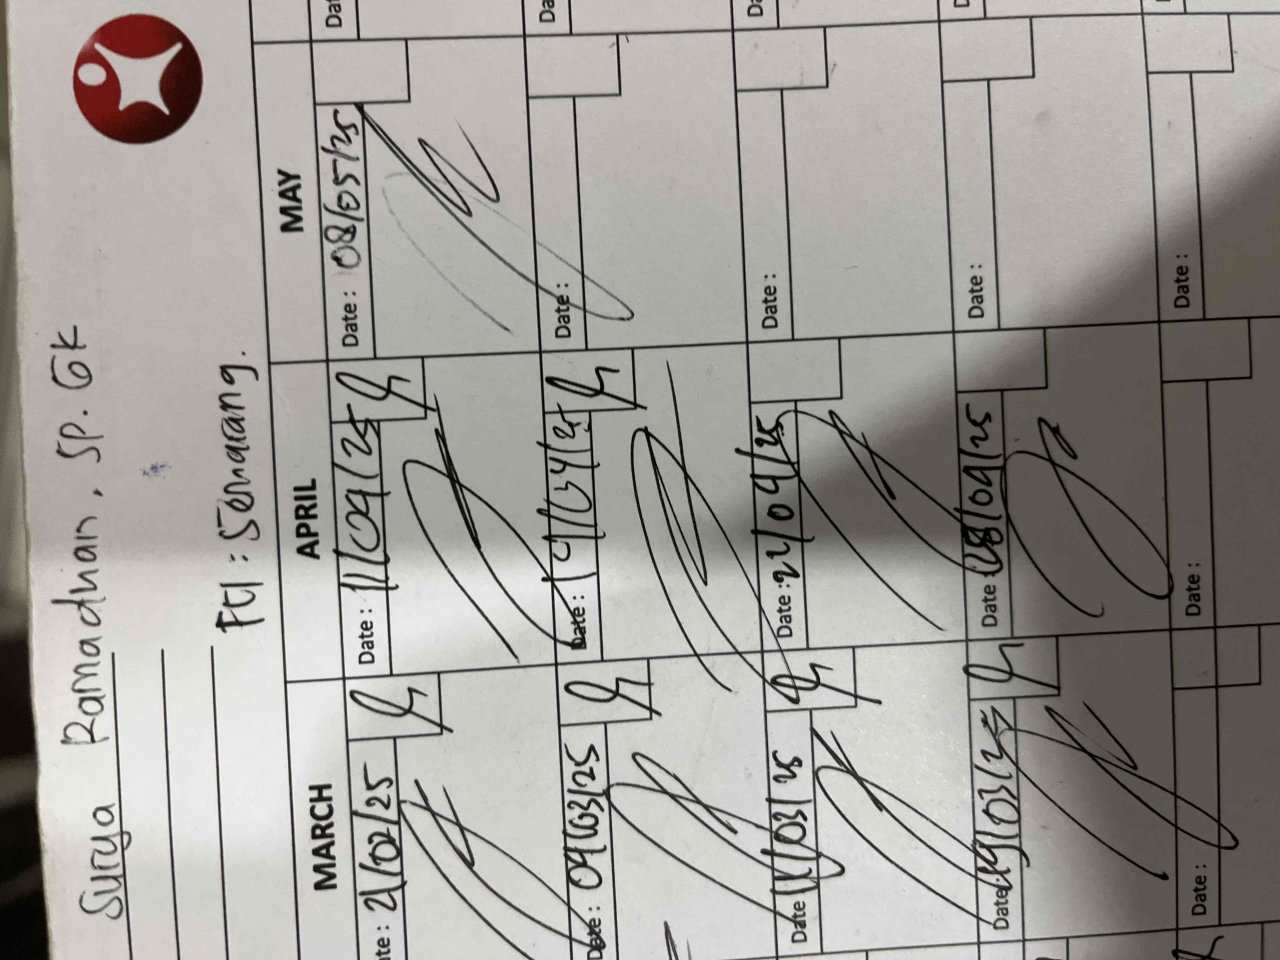 Surya Ramadhan. SP. GK
FCI : Semarang.
MARCH APRIL MAY
Date : 21/02/25 Date : 11/04/25 Date : 08/05/25
Date : 04/03/25 Date : Date :
Date : 11/03/25 Date : 22/04/25 Date :
Date : 19/03/25 Date : 28/04/25 Date :
Date : Date : Date :